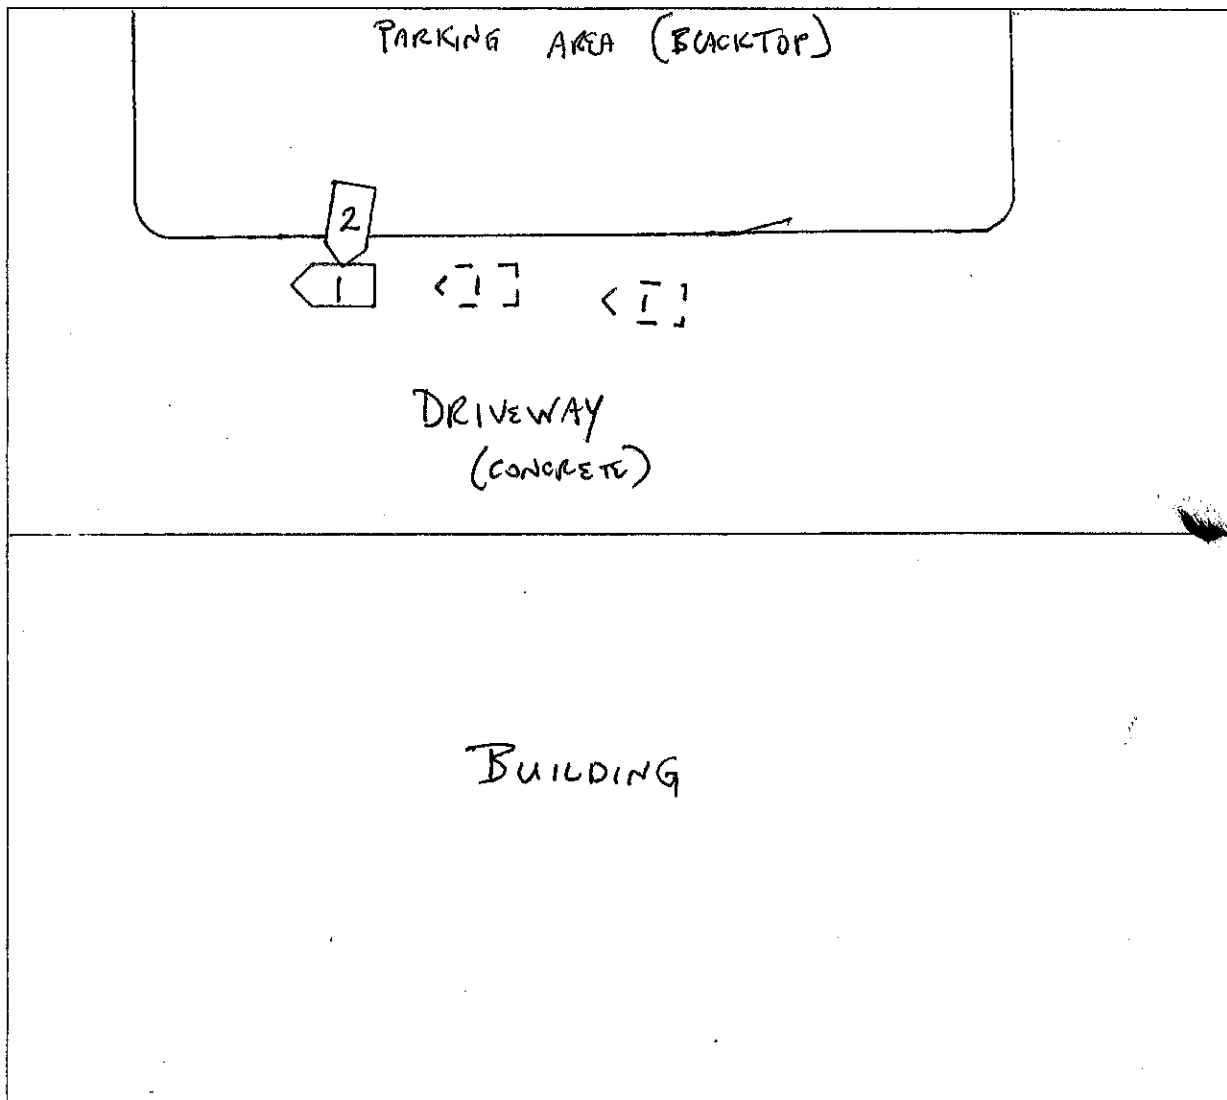 PARKING AREA (BLACKTOP)
2
1 1 1
DRIVEWAY
(CONCRETE)
BUILDING